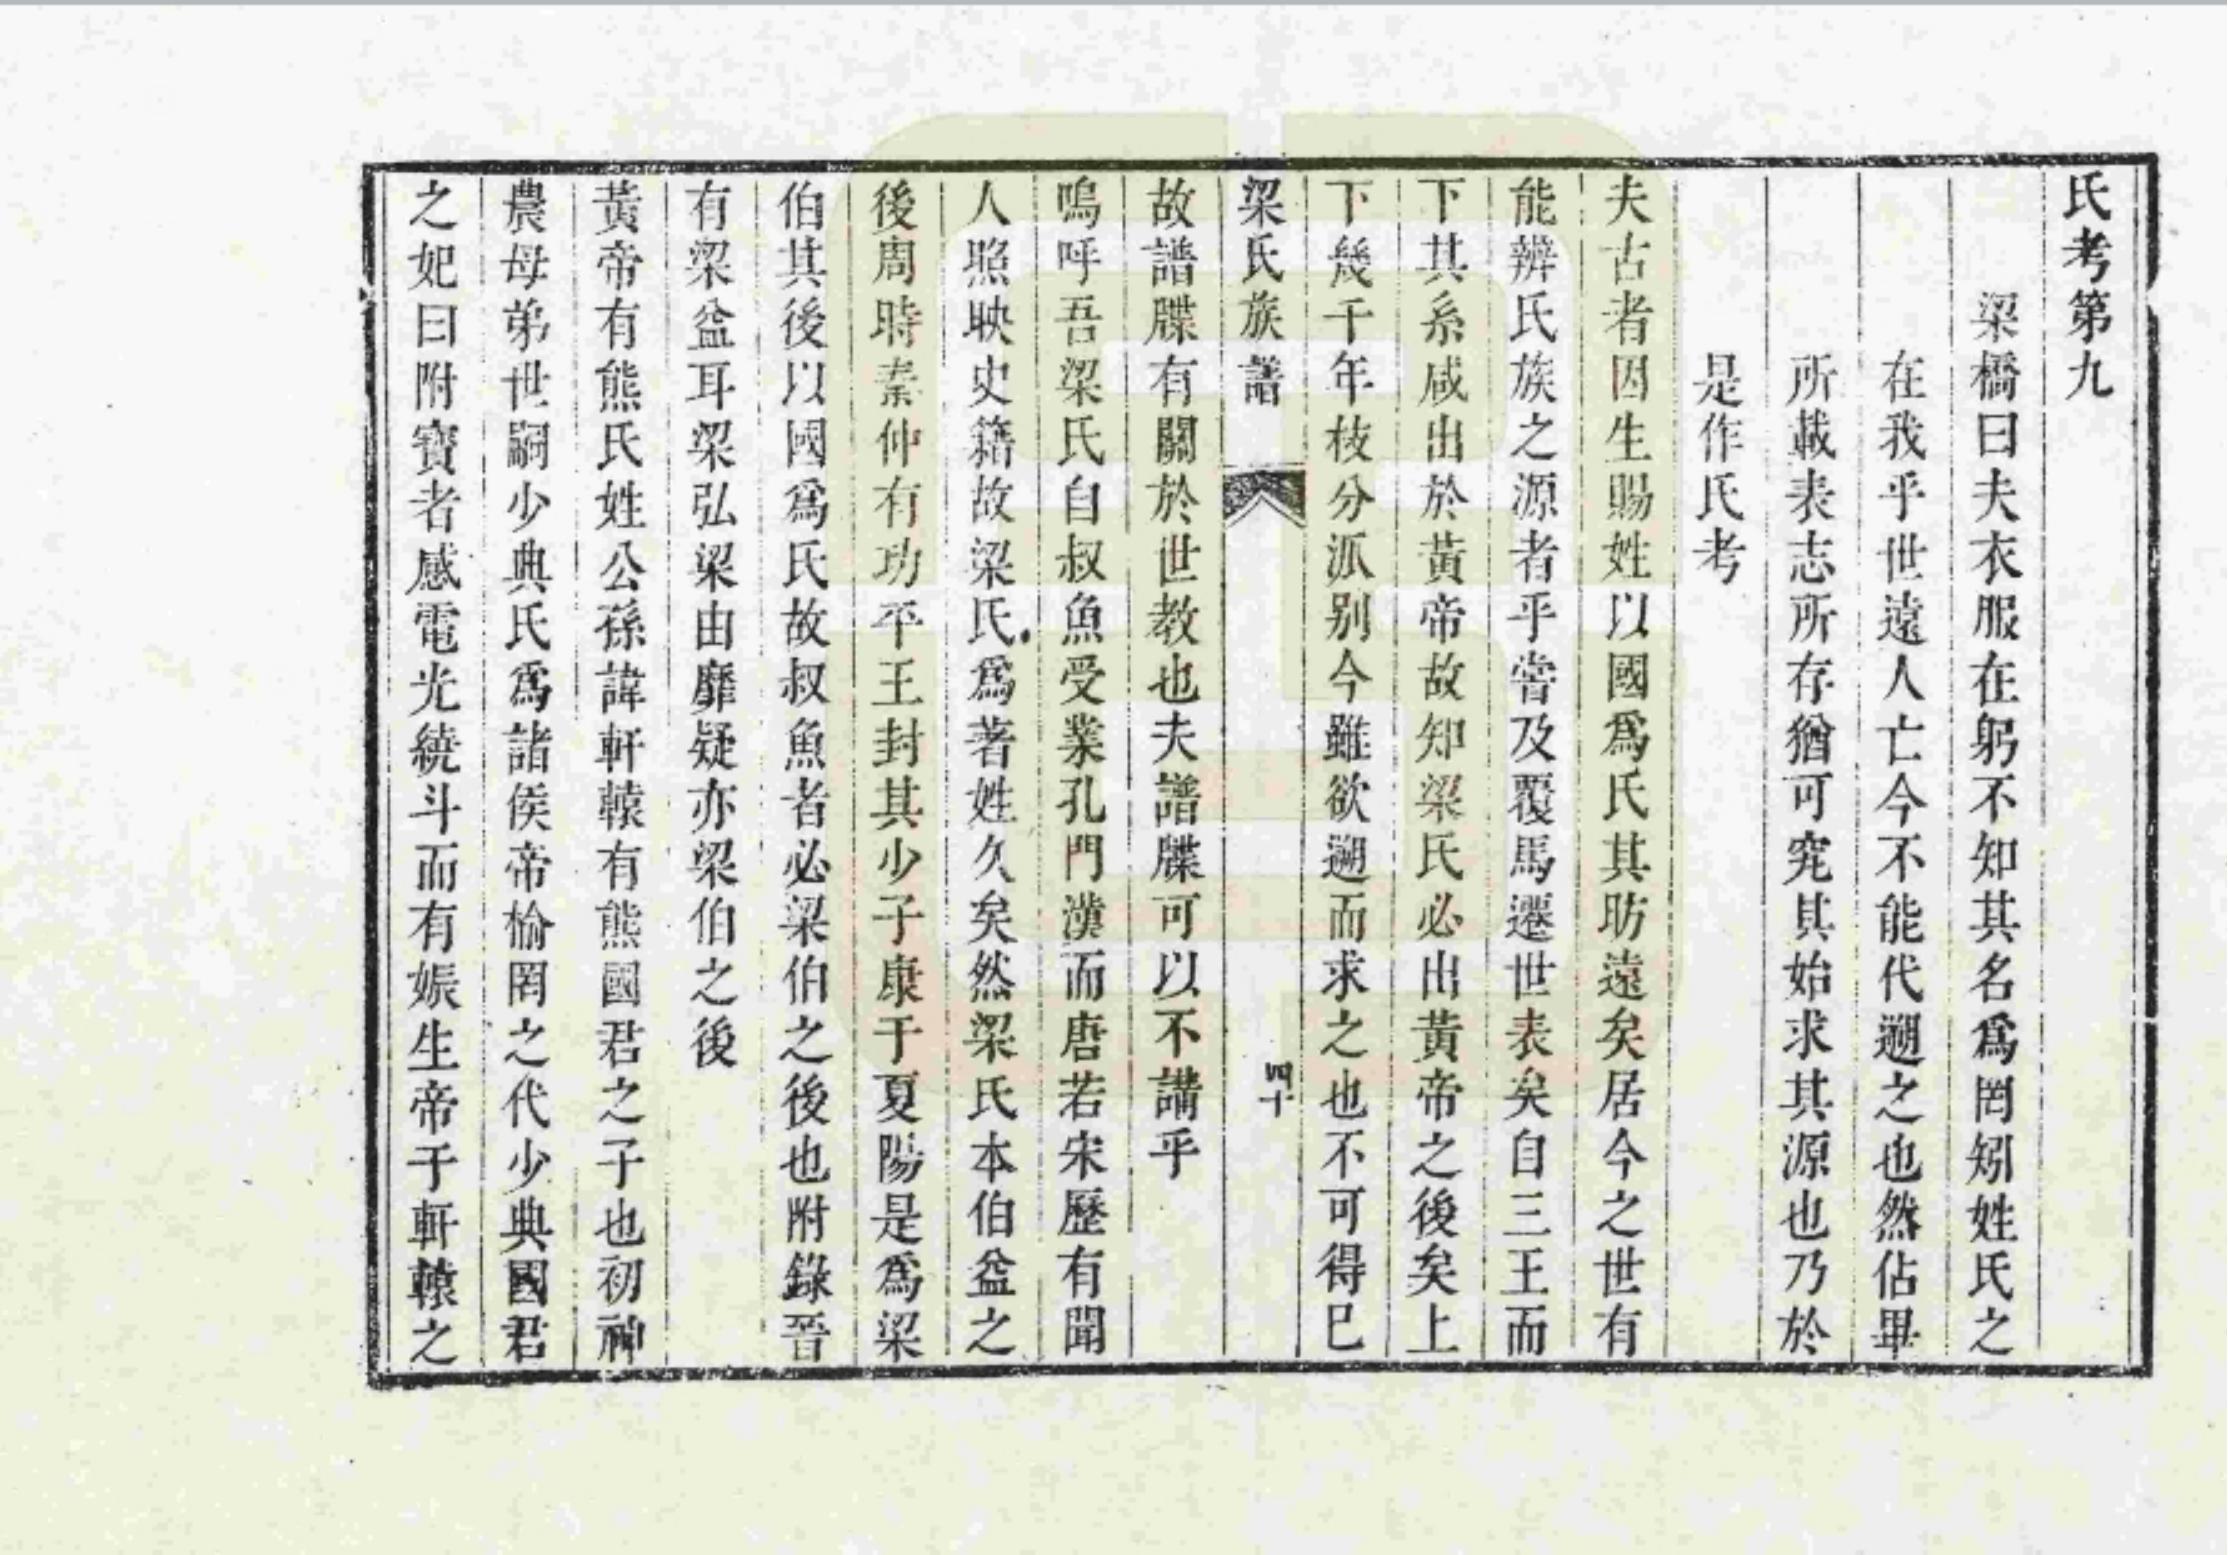 氏考第九
梁橋曰夫衣服在躬不知其名爲罔矧姓氏之
在我乎世遠人亡今不能代遡之也然佔畢
所載表志所存猶可究其始求其源也乃於
是作氏考
夫古者因生賜姓以國爲氏其昉遠矣居今之世有
能辨氏族之源者乎嘗及覆馬遷世表矣自三王而
下其系咸出於黃帝故知梁氏必出黃帝之後矣上
下幾千年枝分派别今雖欲遡而求之也不可得已
梁氏族譜
四十
故譜牒有關於世教也夫譜牒可以不講乎
嗚呼吾梁氏自叔魚受業孔門漢而唐若宋歷有聞
人照映史籍故梁氏爲著姓久矣然梁氏本伯益之
後周時秦仲有功平王封其少子康于夏陽是爲梁
伯其後以國爲氏故叔魚者必梁伯之後也附錄晉
有梁益耳梁弘梁由靡疑亦梁伯之後
黃帝有熊氏姓公孫諱軒轅有熊國君之子也初神
農母弟世嗣少典氏爲諸侯帝榆罔之代少典國君
之妃曰附寶者感電光繞斗而有娠生帝于軒轅之